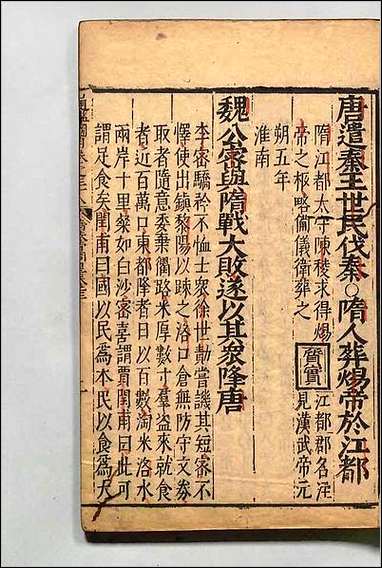 唐遣秦王世民伐秦○隋人葬煬帝於江都
隋江都太守陳稜求得煬
帝之柩略備儀衛葬之
質實
江都郡名注
見漢武帝元
朔五年
淮南
魏公密與隋戰大敗遂以其衆降唐
李密驕矜不恤士衆徐世勣嘗譏其短密不
懌使出鎮黎陽以疎之洛口倉無防守文券
取者隨意委棄衢路米厚數寸羣盗來就食
者近百萬口東都降者日以百數淘米洛水
兩岸十里粲如白沙密喜謂賈閏甫曰此可
謂足食矣閏甫曰國以民爲本民以食爲天